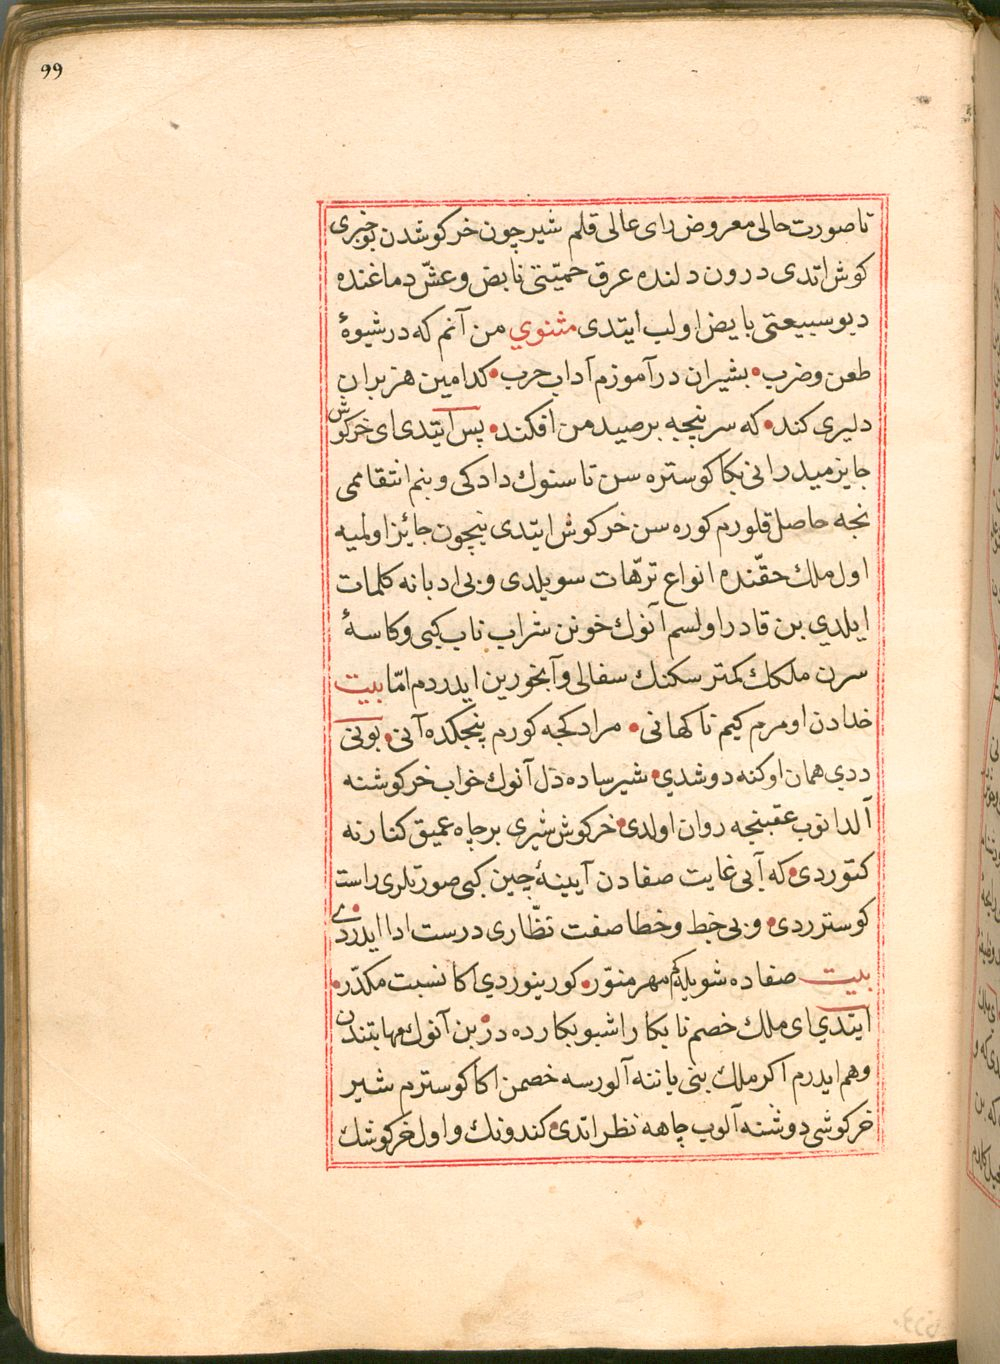 99
تا صورت حالی معروض رای عالی قلم شیر چون خرکوشدن بو خبری
کوش اتدی درون دلنده عرق حمیّتی نابض و عشّ دماغنده
دیو سبیعتی بایض اولب ایتدی مثنوي من آنم که در شیوهٔ
طعن و ضرب • بشیران در آموزم آداب حرب • کدامین هزبران
دلیری کند • که سرپنجه بر صید من افکند • پس ایتدی ای خرکوش
جایز میدر انی بکا کوستره سن تا سنوك دادکی و بنم انتقاممی
نجه حاصل قلورم کوره سن خرکوش ایتدی نیچون جائز اولمیه
اول ملك حقّنده انواع ترّهات سویلدی و بی ادبانه کلمات
ایلدي بن قادر اولسم آنوك خونن شراب ناب کبی و کاسهٔ
سرن ملکك کمتر سکنك سفالی و آبخورین ایدردم امّا بیت
خدادن اومرم کیم ناکهانی • مرادکجه کورم پنجکده آنی • بونی
ددي همان اوکنه دوشدي • شیر ساده دل آنوك خواب خرکوشنه
آلدانوب عقبنجه روان اولدی • خرکوش شیری بر چاه عمیق کنارنه
کتوردی • که آبی غایت صفادن آیینهٔ چین کبی صورتلری راست
کوستردی • و بی خبط و خطا صفت نظّاری درست ادا ایدردي •
بیت صفاده شویله کم مهر منوّر • کورینوردي اکا نسبت مکدّر •
ایتدي ای ملك خصم نابکار اشبو بکارده در • بن آنوك مهابتندن
وهم ایدرم اکر ملك بنی یاننه آلورسه خصمن اکا کوسترم شیر
خرکوشی دوشنه آلوب چاهه نظر اتدی • کندونك و اول خرکوشك